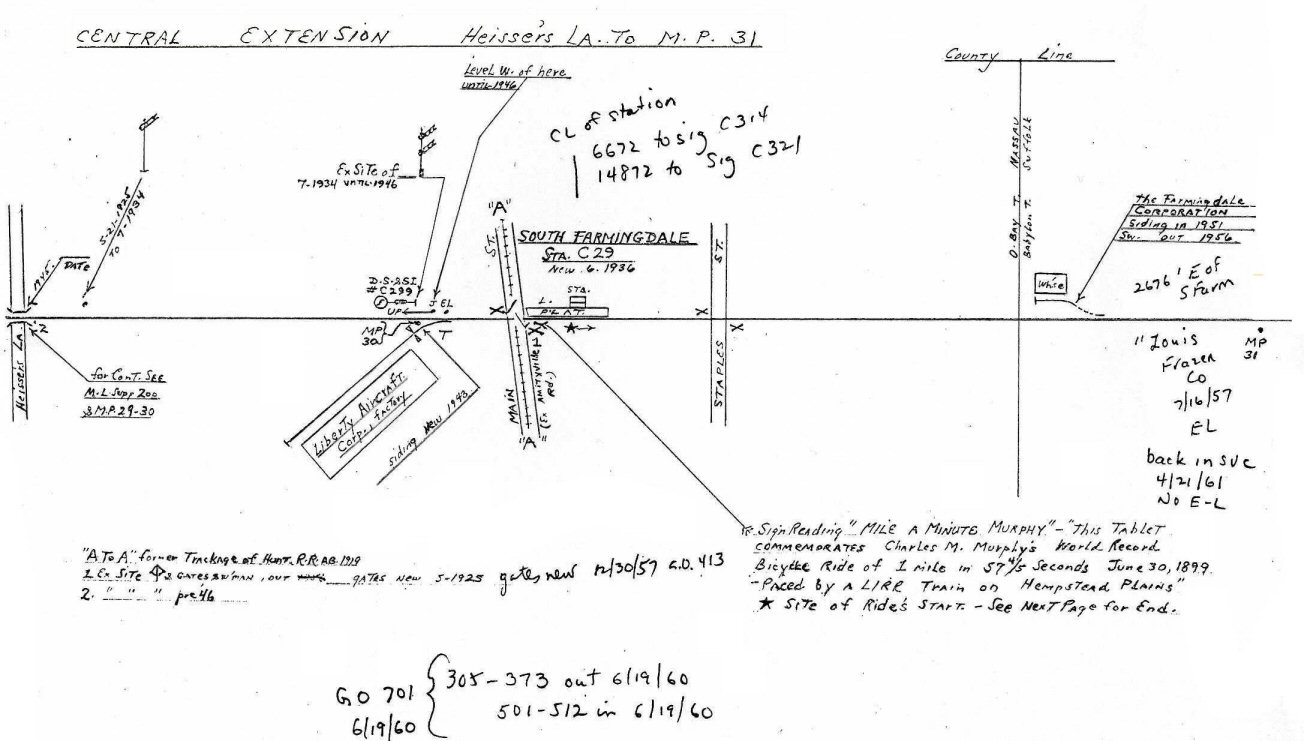 CENTRAL EXTENSION Heisser's LA. To M. P. 31
Level W. of here
until 1946
County Line
CL of station
6672 to sig C314
14872 to Sig C321
Ex Site of
7-1934 until 1946
5-21-1925
TO 7-1934
1945.
DATE
"A"
ST.
SOUTH FARMINGDALE
STA. C 29
New . 6. 1936
D.S-2SI
# C299
J EL
UP
MP
30
T
STA.
L.
PLAT.
★
X
X
X
X
1
2
ST.
STAPLES
O. Bay T. NASSAU
Babylon T. Suffolk
the Farmingdale
CORPORATION
Siding in 1951
Sw. OUT 1956
White
2676' E of
S Farm
MP
31
"Louis
Frazen
Co
7/16/57
EL
back in SVC
4/21/61
No E-L
Heissers LA.
for Cont. SEE
M.L. Supp 200
& M.P. 29-30
Liberty Aircraft
Corp., factory
siding New 1943
MAIN
(Ex Amityville
Rd.)
"A"
Sign Reading "MILE A MINUTE MURPHY" - "This Tablet
COMMEMORATES Charles M. Murphy's World Record
Bicycle Ride of 1 mile in 57 4/5 Seconds June 30, 1899.
-Paced by a LIRR Train on Hempstead Plains"
★ Site of Ride's START. - See Next Page for End.
"A To A" former Trackage of Hunt. R.R. AB. 1919
1 Ex Site GATES & W'MAN, OUT GATES New 5-1925 gates new 12/30/57 G.O. 413
2. " " " pre 46
GO 701
6/19/60
305-373 out 6/19/60
501-512 in 6/19/60